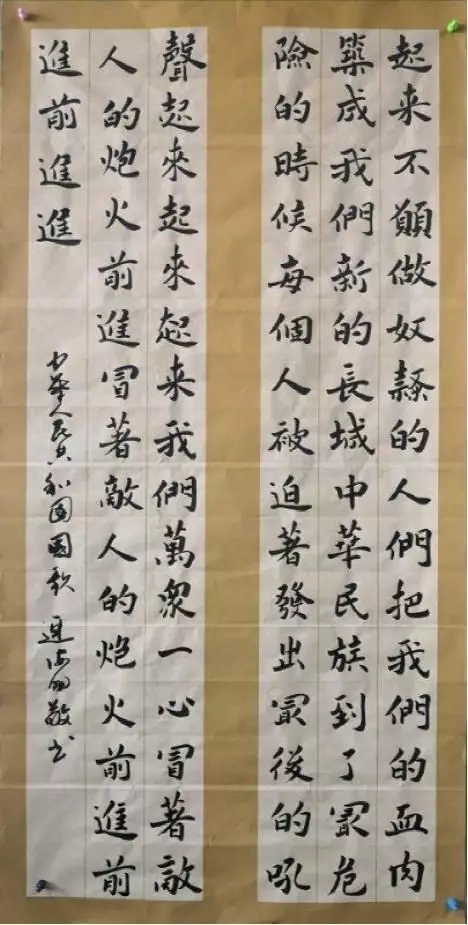 起来不願做奴隸的人們把我們的血肉
築成我們新的長城中華民族到了最危
險的時候每個人被迫著發出最後的吼
聲起來起來起来我們萬衆一心冒著敵
人的炮火前進冒著敵人的炮火前進前
進前進進
中華人民共和國國歌 敬书